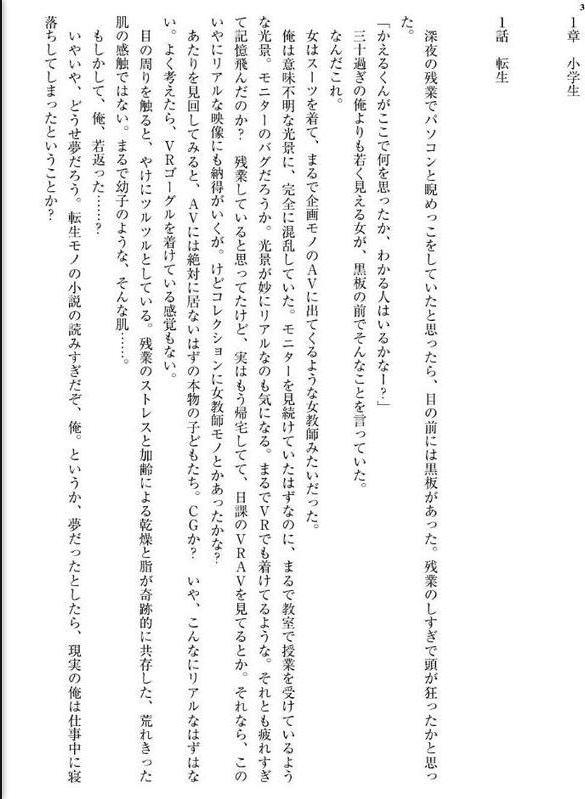 3
1章　小学生
1話　転生
　深夜の残業でパソコンと睨めっこをしていたと思ったら、目の前には黒板があった。残業のしすぎで頭が狂ったかと思っ
た。
「かえるくんがここで何を思ったか、わかる人はいるかなー？」
　三十過ぎの俺よりも若く見える女が、黒板の前でそんなことを言っていた。
　なんだこれ。
　女はスーツを着て、まるで企画モノのAVに出てくるような女教師みたいだった。
　俺は意味不明な光景に、完全に混乱していた。モニターを見続けていたはずなのに、まるで教室で授業を受けているよう
な光景。モニターのバグだろうか。光景が妙にリアルなのも気になる。まるでVRでも着けてるような。それとも疲れすぎ
て記憶飛んだのか？　残業していると思ってたけど、実はもう帰宅してて、日課のVRAVを見てるとか。それなら、この
いやにリアルな映像にも納得がいくが。けどコレクションに女教師モノとかあったかな？
　あたりを見回してみると、AVには絶対に居ないはずの本物の子どもたち。CGか？　いや、こんなにリアルなはずはな
い。よく考えたら、VRゴーグルを着けている感覚もない。
　目の周りを触ると、やけにツルツルとしている。残業のストレスと加齢による乾燥と脂が奇跡的に共存した、荒れきった
肌の感触ではない。まるで幼子のような、そんな肌……。
　もしかして、俺、若返った……？
　いやいや、どうせ夢だろう。転生モノの小説の読みすぎだぞ、俺。というか、夢だったとしたら、現実の俺は仕事中に寝
落ちしてしまったということか？